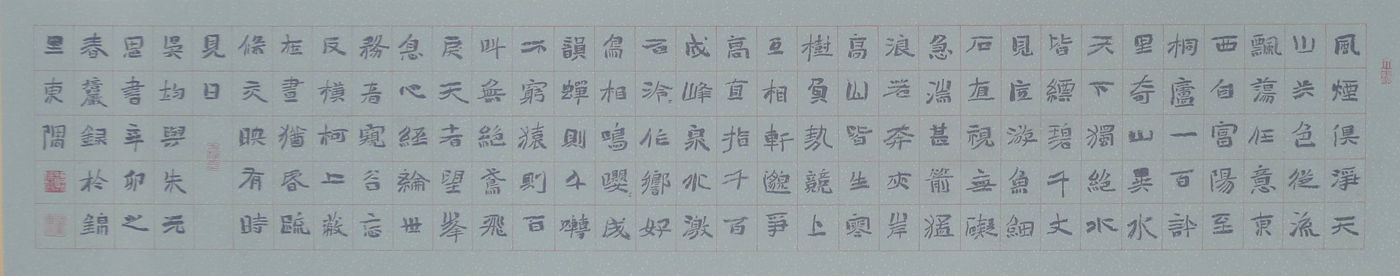 風煙俱淨天
山共色從流
飄蕩任意東
西自富陽至
桐廬一百許
里奇山異水
天下獨絕水
皆縹碧千丈
見底游魚細
石直視無礙
急湍甚箭猛
浪若奔夾岸
高山皆生寒
樹負勢競上
互相軒邈爭
高直指千百
成峰泉水激
石泠々作響好
鳥相鳴嚶成
韻蟬則千囀
不窮猿則百
叫無絕鳶飛
戾天者望峯
息心經綸世
務者窺谷忘
反橫柯上蔽
在晝猶昏疏
條交映有時
見日
吳均與朱元
思書辛卯之
春錄於錦
里東隅